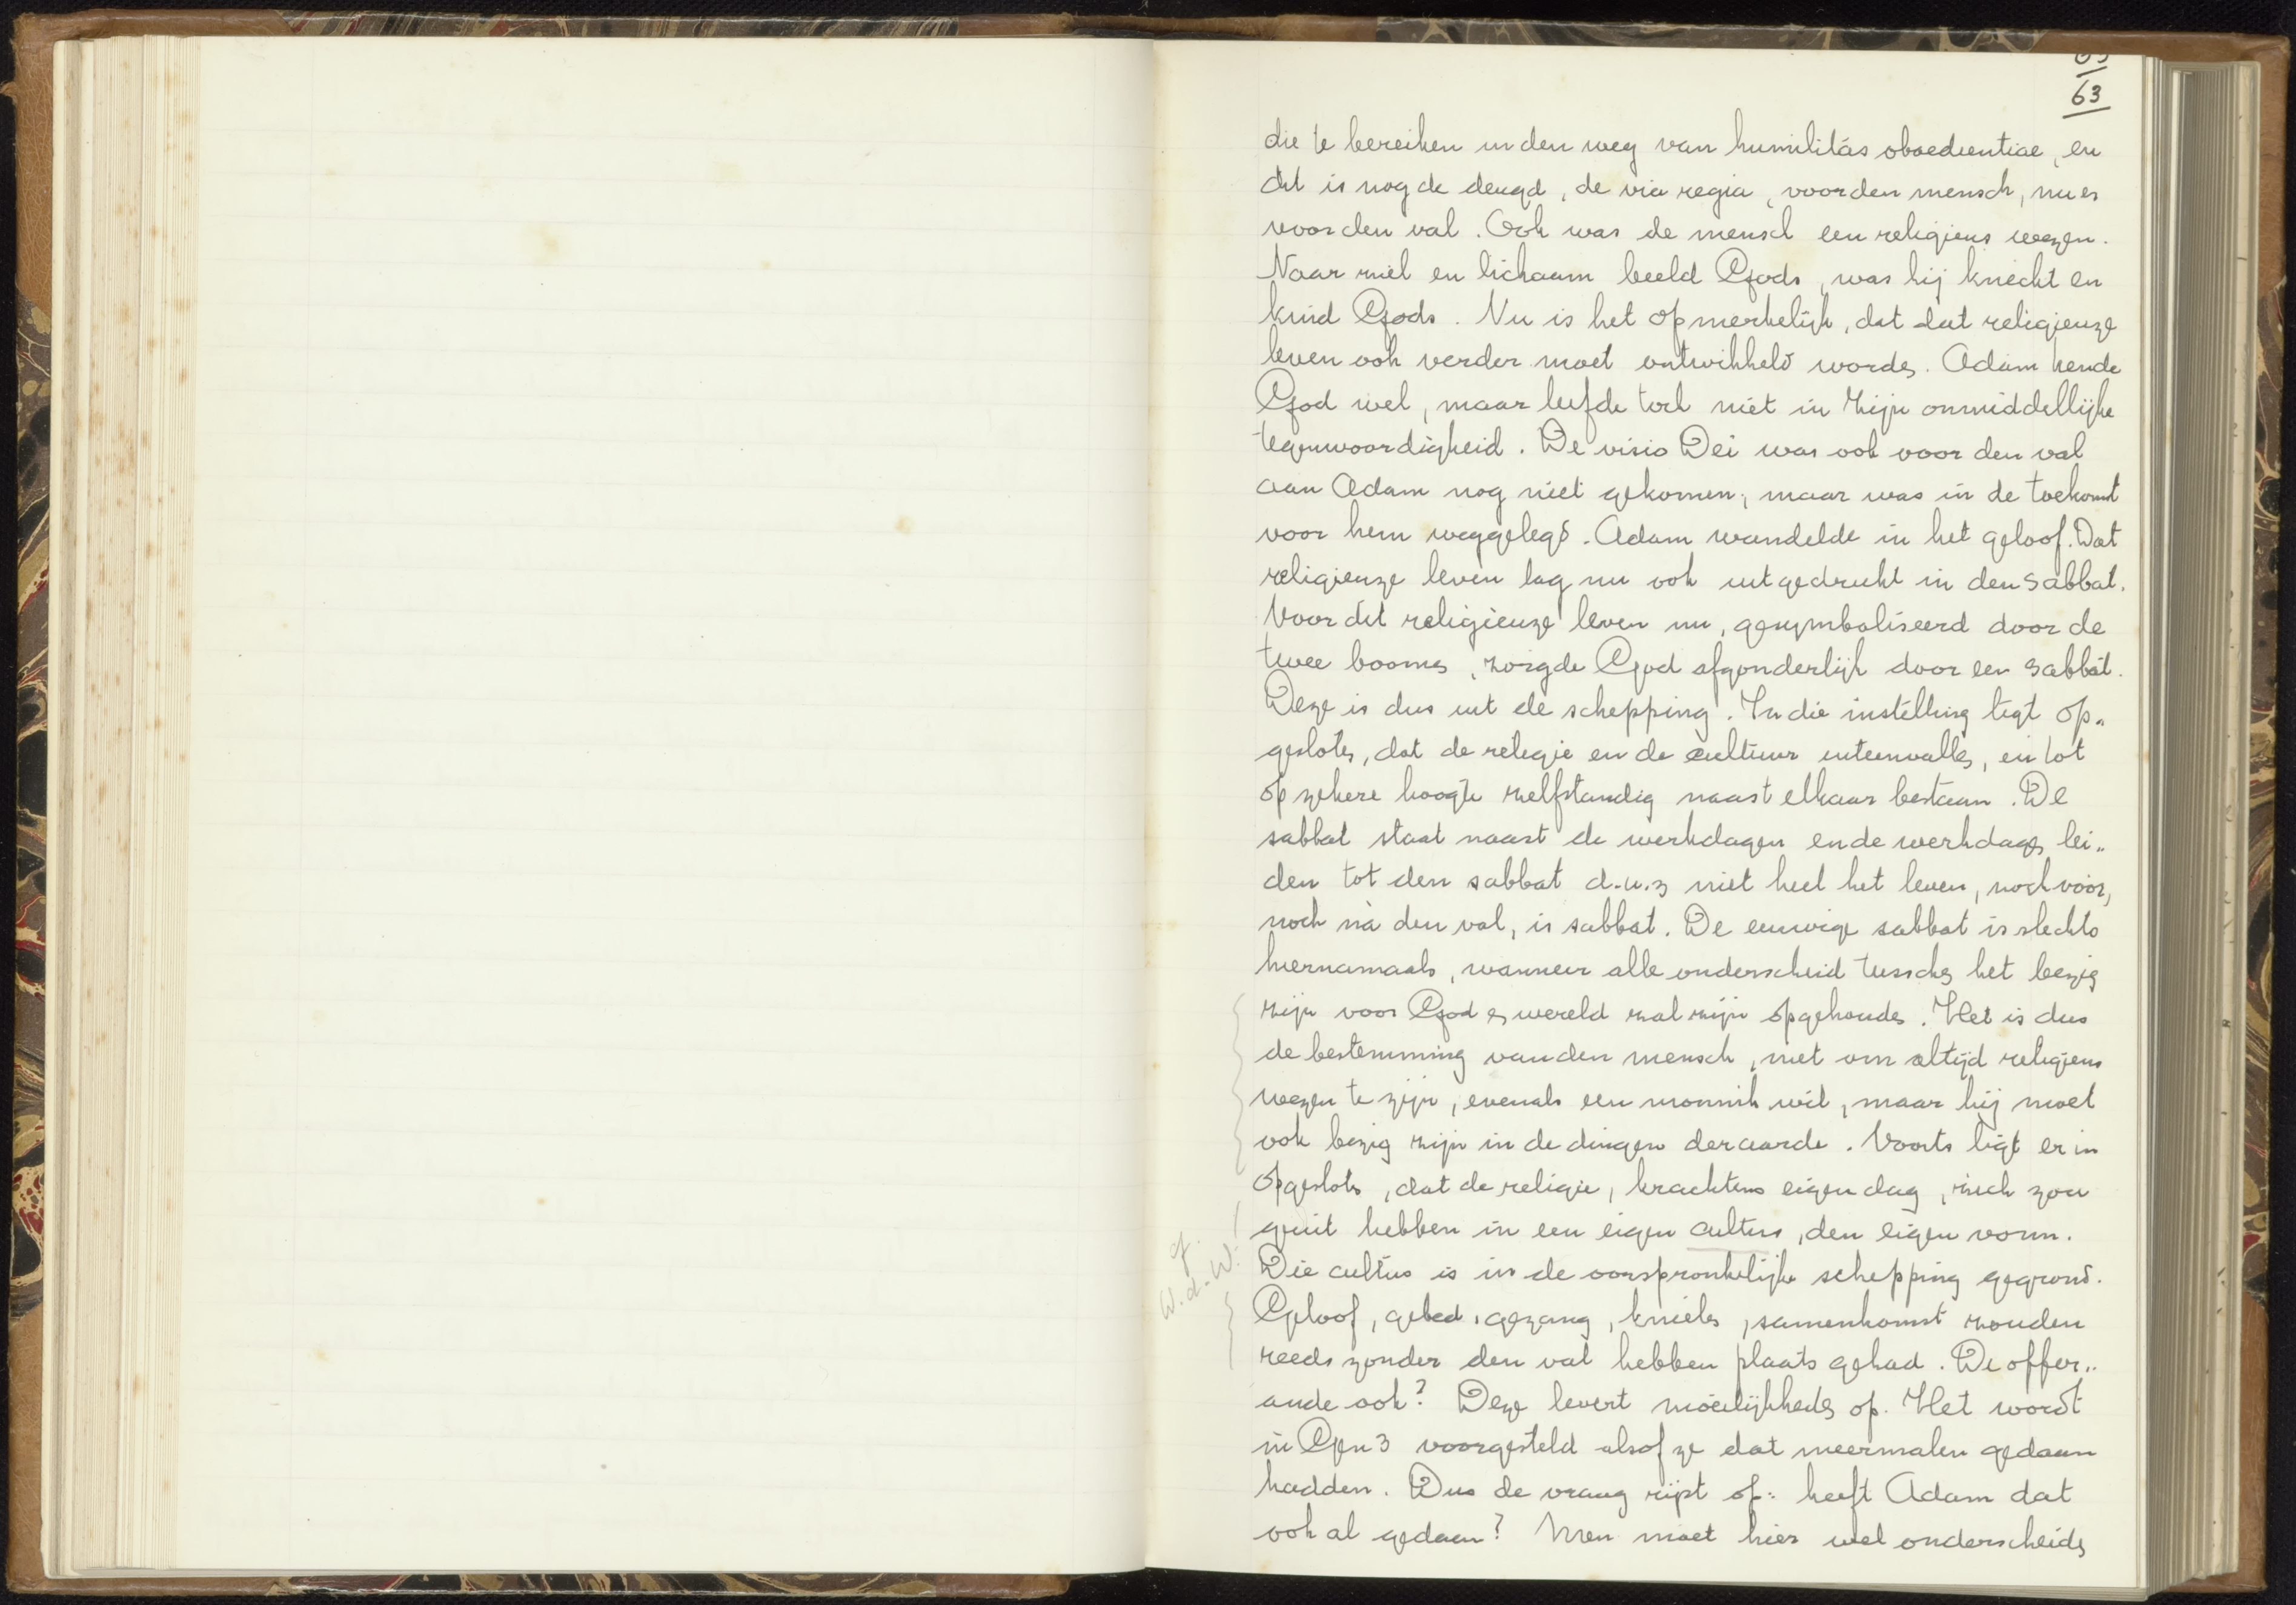 63
die te bereiken in den weg van humilitas oboedientiae, en
dit is nog de deugd, de via regia, voor den mensch, nu en
voor den val. Ook was de mensch een religieus wezen.
Naar ziel en lichaam beeld Gods, was hij knecht en
kind Gods. Nu is het opmerkelijk, dat dat religieuze
leven ook verder moet ontwikkeld worden. Adam kende
God wel, maar leefde toch niet in Zijn onmiddellijke
tegenwoordigheid. De visio Dei was ook voor den val
aan Adam nog niet gekomen, maar was in de toekomst
voor hem weggelegd. Adam wandelde in het geloof. Dat
religieuze leven lag nu ook uitgedrukt in den sabbat.
Voor dit religieuze leven nu, gesymboliseerd door de
twee boomen, zorgde God afzonderlijk door een sabbat.
Deze is dus uit de schepping. In die instelling ligt op„
gesloten, dat de religie en de cultuur uiteenvallen, en tot
op zekere hoogte zelfstandig naast elkaar bestaan. De
sabbat staat naast de werkdagen en de werkdagen lei„
den tot den sabbat d.w.z niet heel het leven, noch vóór,
noch ná den val, is sabbat. De eeuwige sabbat is slechts
hiernamaals, wanneer alle onderscheid tusschen het bezig
zijn voor God en wereld zal zijn opgehouden. Het is dus
de bestemming van den mensch, niet om altijd religieus
wezen te zijn, evenals een monnik wil, maar hij moet
ook bezig zijn in de dingen der aarde. Voorts ligt er in
opgesloten, dat de religie, krachtens eigen dag, zich zou
geuit hebben in een eigen cultus, den eigen vorm.
cf.
W.d.W.
Die cultus is in de oorspronkelijke schepping gegrond.
Geloof, gebed, gezang, knielen, samenkomst zouden
reeds zonder den val hebben plaats gehad. De offer„
ande ook? Deze levert moeilijkheden op. Het wordt
in Gen 3 voorgesteld alsof ze dat meermalen gedaan
hadden. Dus de vraag rijst op: heeft Adam dat
ook al gedaan? Men moet hier wel onderscheiden